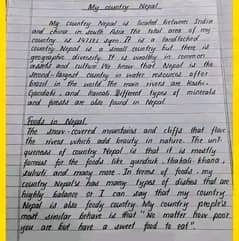 My country Nepal
My country Nepal is located between India
and china, in south Asia. The total area of my
country is 147181 sqm. It is a landlocked
country. Nepal is a small country but there is
geographic diversity. It is wealthy in common
assets and culture. We know that Nepal is the
second-largest country in water resources after
brazil in the world. The main rivers are Koshi,
Gandaki, and Karnali. Different types of minerals
and forests are also found in Nepal.
Foods in Nepal
The snow-covered mountains and cliffs that flow
the rivers which add beauty in nature. The uni-
queness of country Nepal is that it is mostly
famous for the foods like gundruk, thakali khana,
sukuti and many more. In terms of foods, my
country Nepal has many types of dishes that are
highly balance so I can say that my country
Nepal is also foody country. My country people's
most similar behave is that "No matter how poor
you are but have a sweet food to eat".